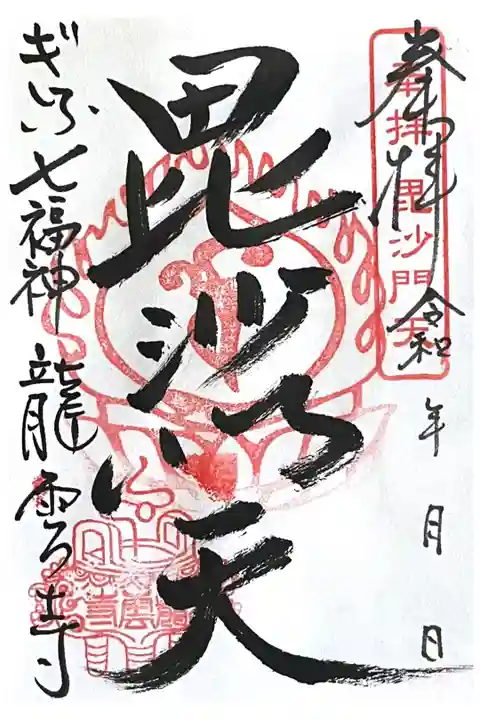 奉拝 令和 年 月 日
奉拝 毘沙門天
毘沙門天
ぎふ七福神 龍雲寺